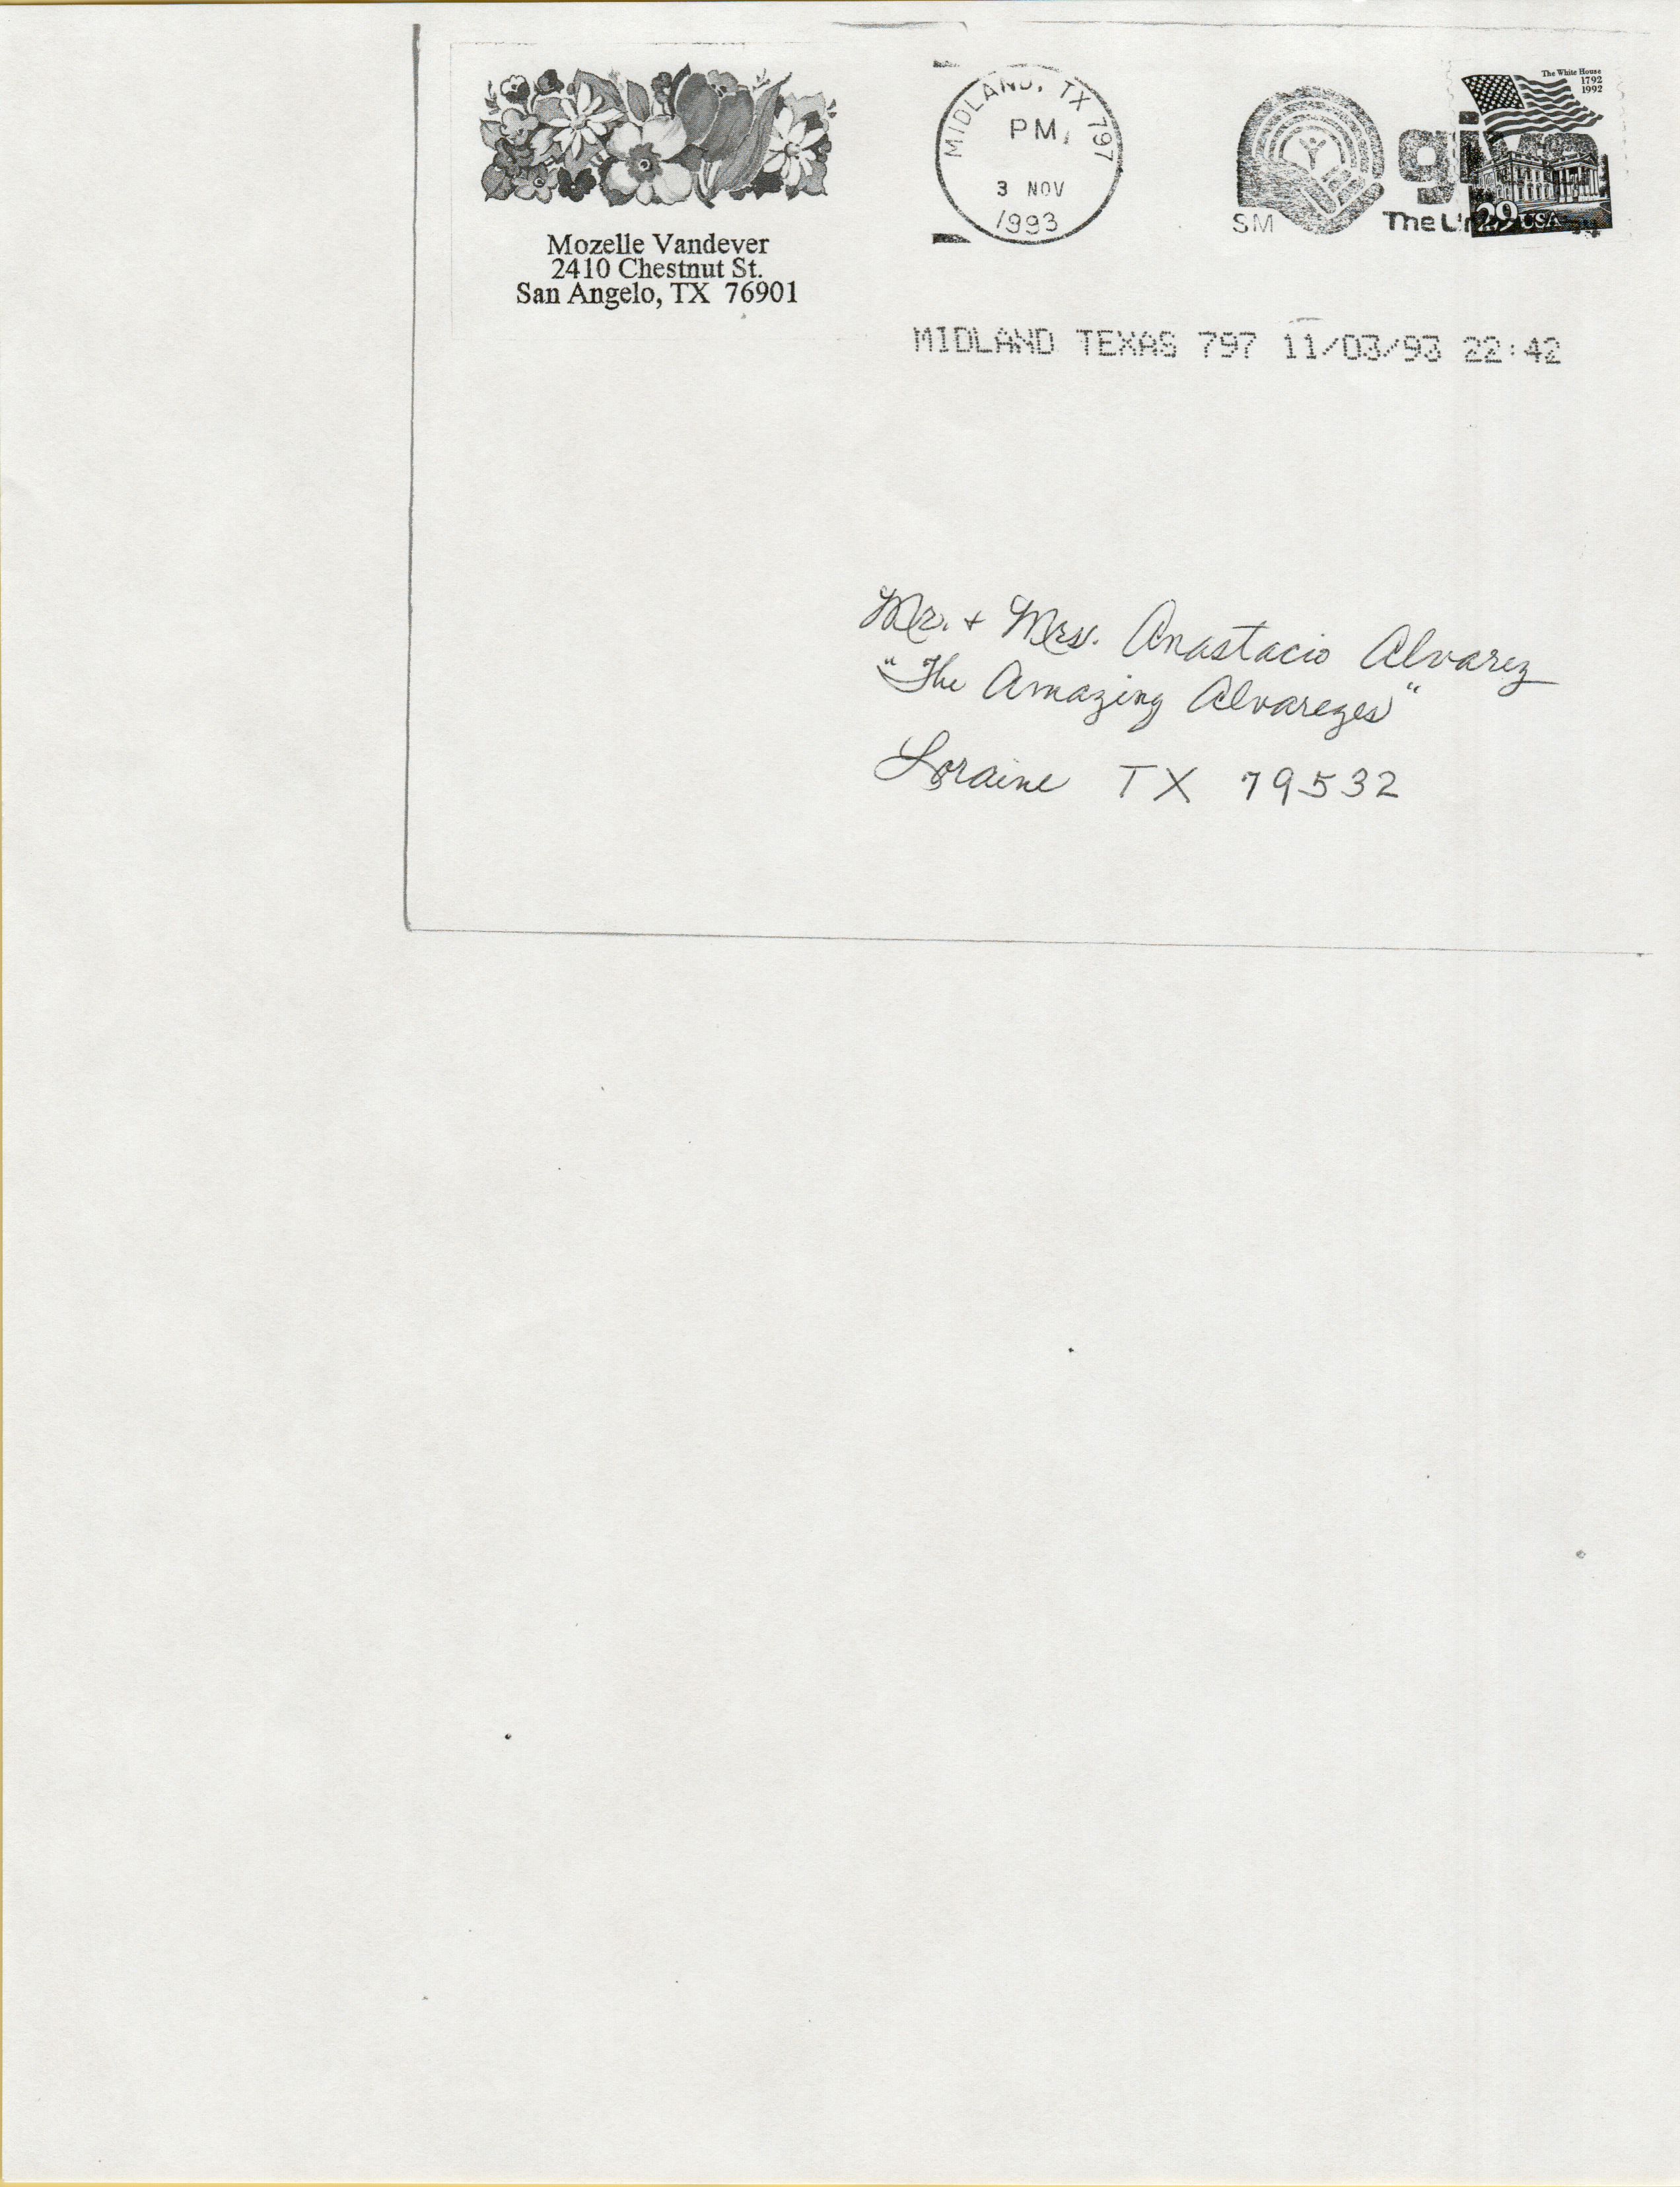 Mozelle Vandever
2410 Chestnut St.
San Angelo, TX 76901
MIDLAND, TX 797
PM
3 NOV
1993
SM
The
The White House
1792
1992
29 USA
MIDLAND TEXAS 797 11/03/93 22:42
Mr. + Mrs. Anastacio Alvarez
"The Amazing Alvarezes"
Loraine TX 79532